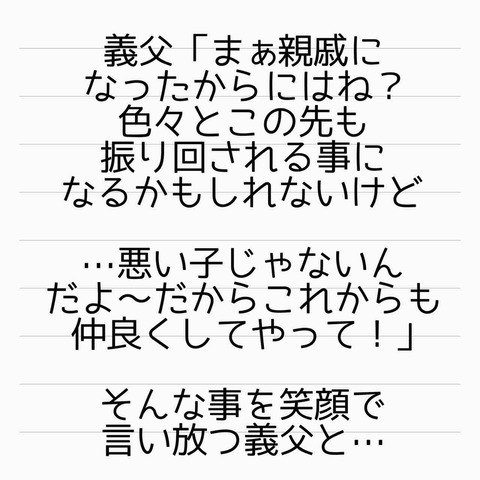 義父「まぁ親戚に
なったからにはね？
色々とこの先も
振り回される事に
なるかもしれないけど
…悪い子じゃないん
だよ～だからこれからも
仲良くしてやって！」
そんな事を笑顔で
言い放つ義父と…